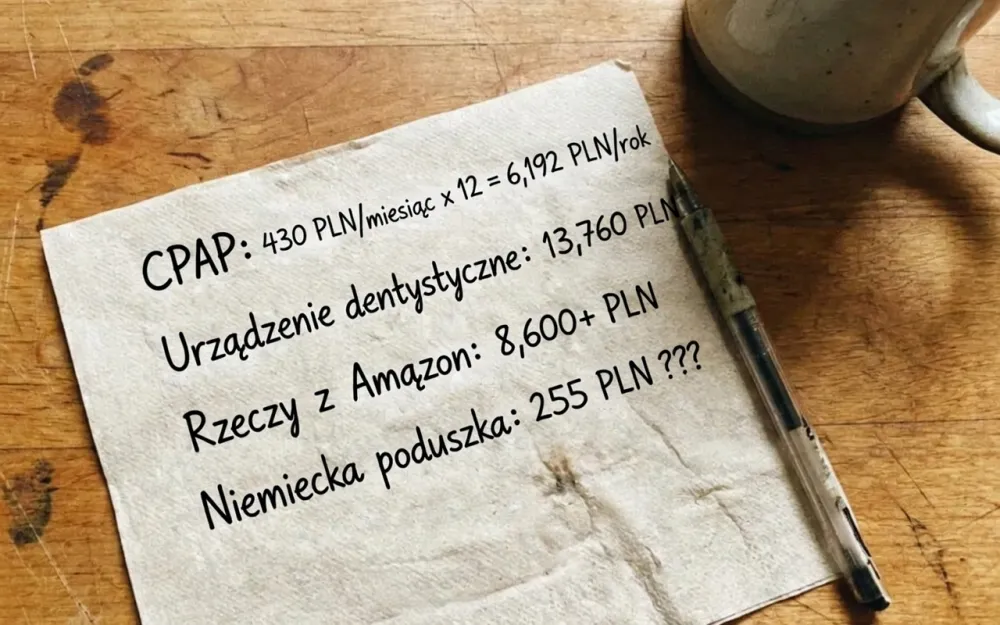 CPAP: 430 PLN/miesiąc x 12 = 6,192 PLN/rok
Urządzenie dentystyczne: 13,760 PLN
Rzeczy z Amązon: 8,600+ PLN
Niemiecka poduszka: 255 PLN ???